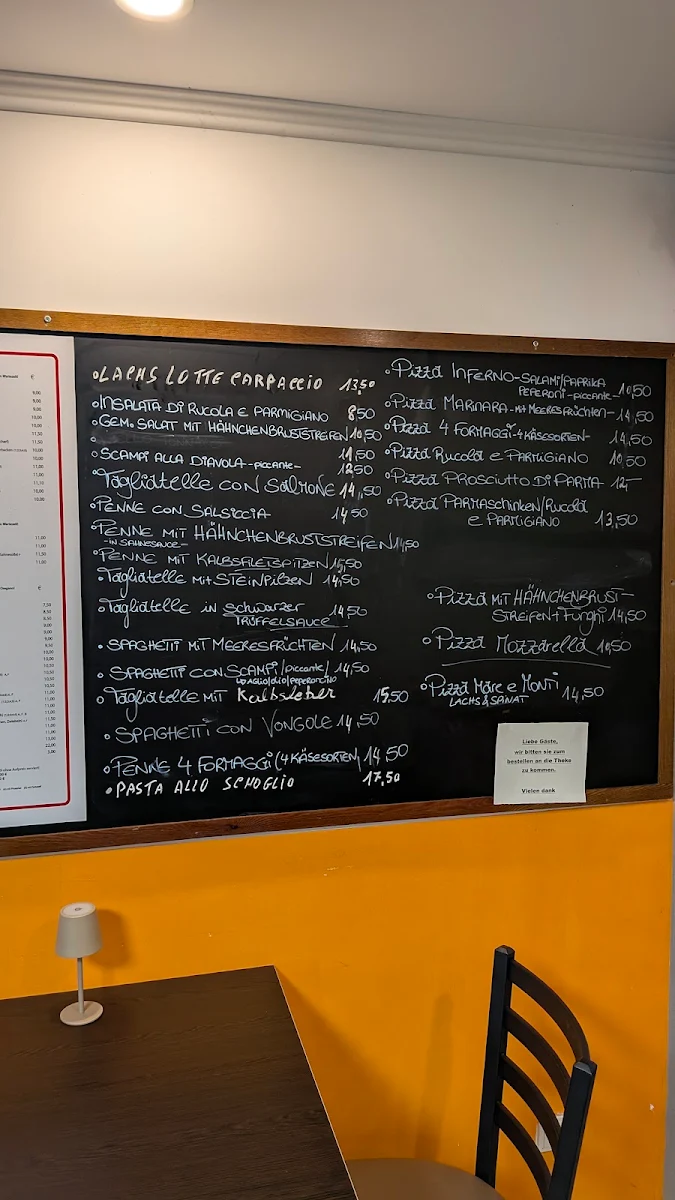 Lachs Lotte Carpaccio 13,50
Insalata Di Rucola e Parmigiano 8,50
Gem. Salat mit Hähnchenbruststreifen 10,50
11,50
Scampi alla Diavola -piccante- 12,50
Tagliatelle con Salmone 14,50
Penne con Salsiccia 14,50
Penne mit Hähnchenbruststreifen 14,50
-in Sahnesauce-
Penne mit Kalbsfiletspitzen 15,50
Tagliatelle mit Steinpilzen 14,50
Tagliatelle in Schwarzer 14,50
Trüffelsauce
Spaghetti mit Meeresfrüchten 14,50
Spaghetti con Scampi/piccante/ 14,50
Tagliatelle mit Kalbsleber 15,50
Spaghetti con Vongole 14,50
Penne 4 Formaggi (4 Käsesorten) 14,50
Pasta allo Scnoglio 17,50
Pizza Inferno-Salami/Paprika
Peperoni -piccante- 10,50
Pizza Marinara -mit Meeresfrüchten- 14,50
Pizza 4 Formaggi-4 Käsesorten- 14,50
Pizza Rucola e Parmigiano 10,50
Pizza Prosciutto Di Parma 12,-
Pizza Parmaschinken/Rucola
e Parmigiano 13,50
Pizza mit Hähnchenbrust-
streifen + Funghi 14,50
Pizza Mozzarella 10,50
Pizza Mare e Monti 14,50
Lachs & Sainat
Liebe Gäste,
wir bitten sie zum
bestellen an die Theke
zu kommen.
Vielen dank